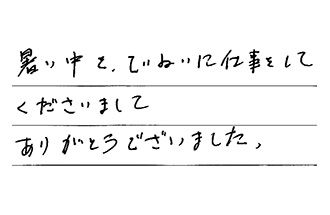 暑い中を、ていねいに仕事をして
くださいまして
ありがとうございました、